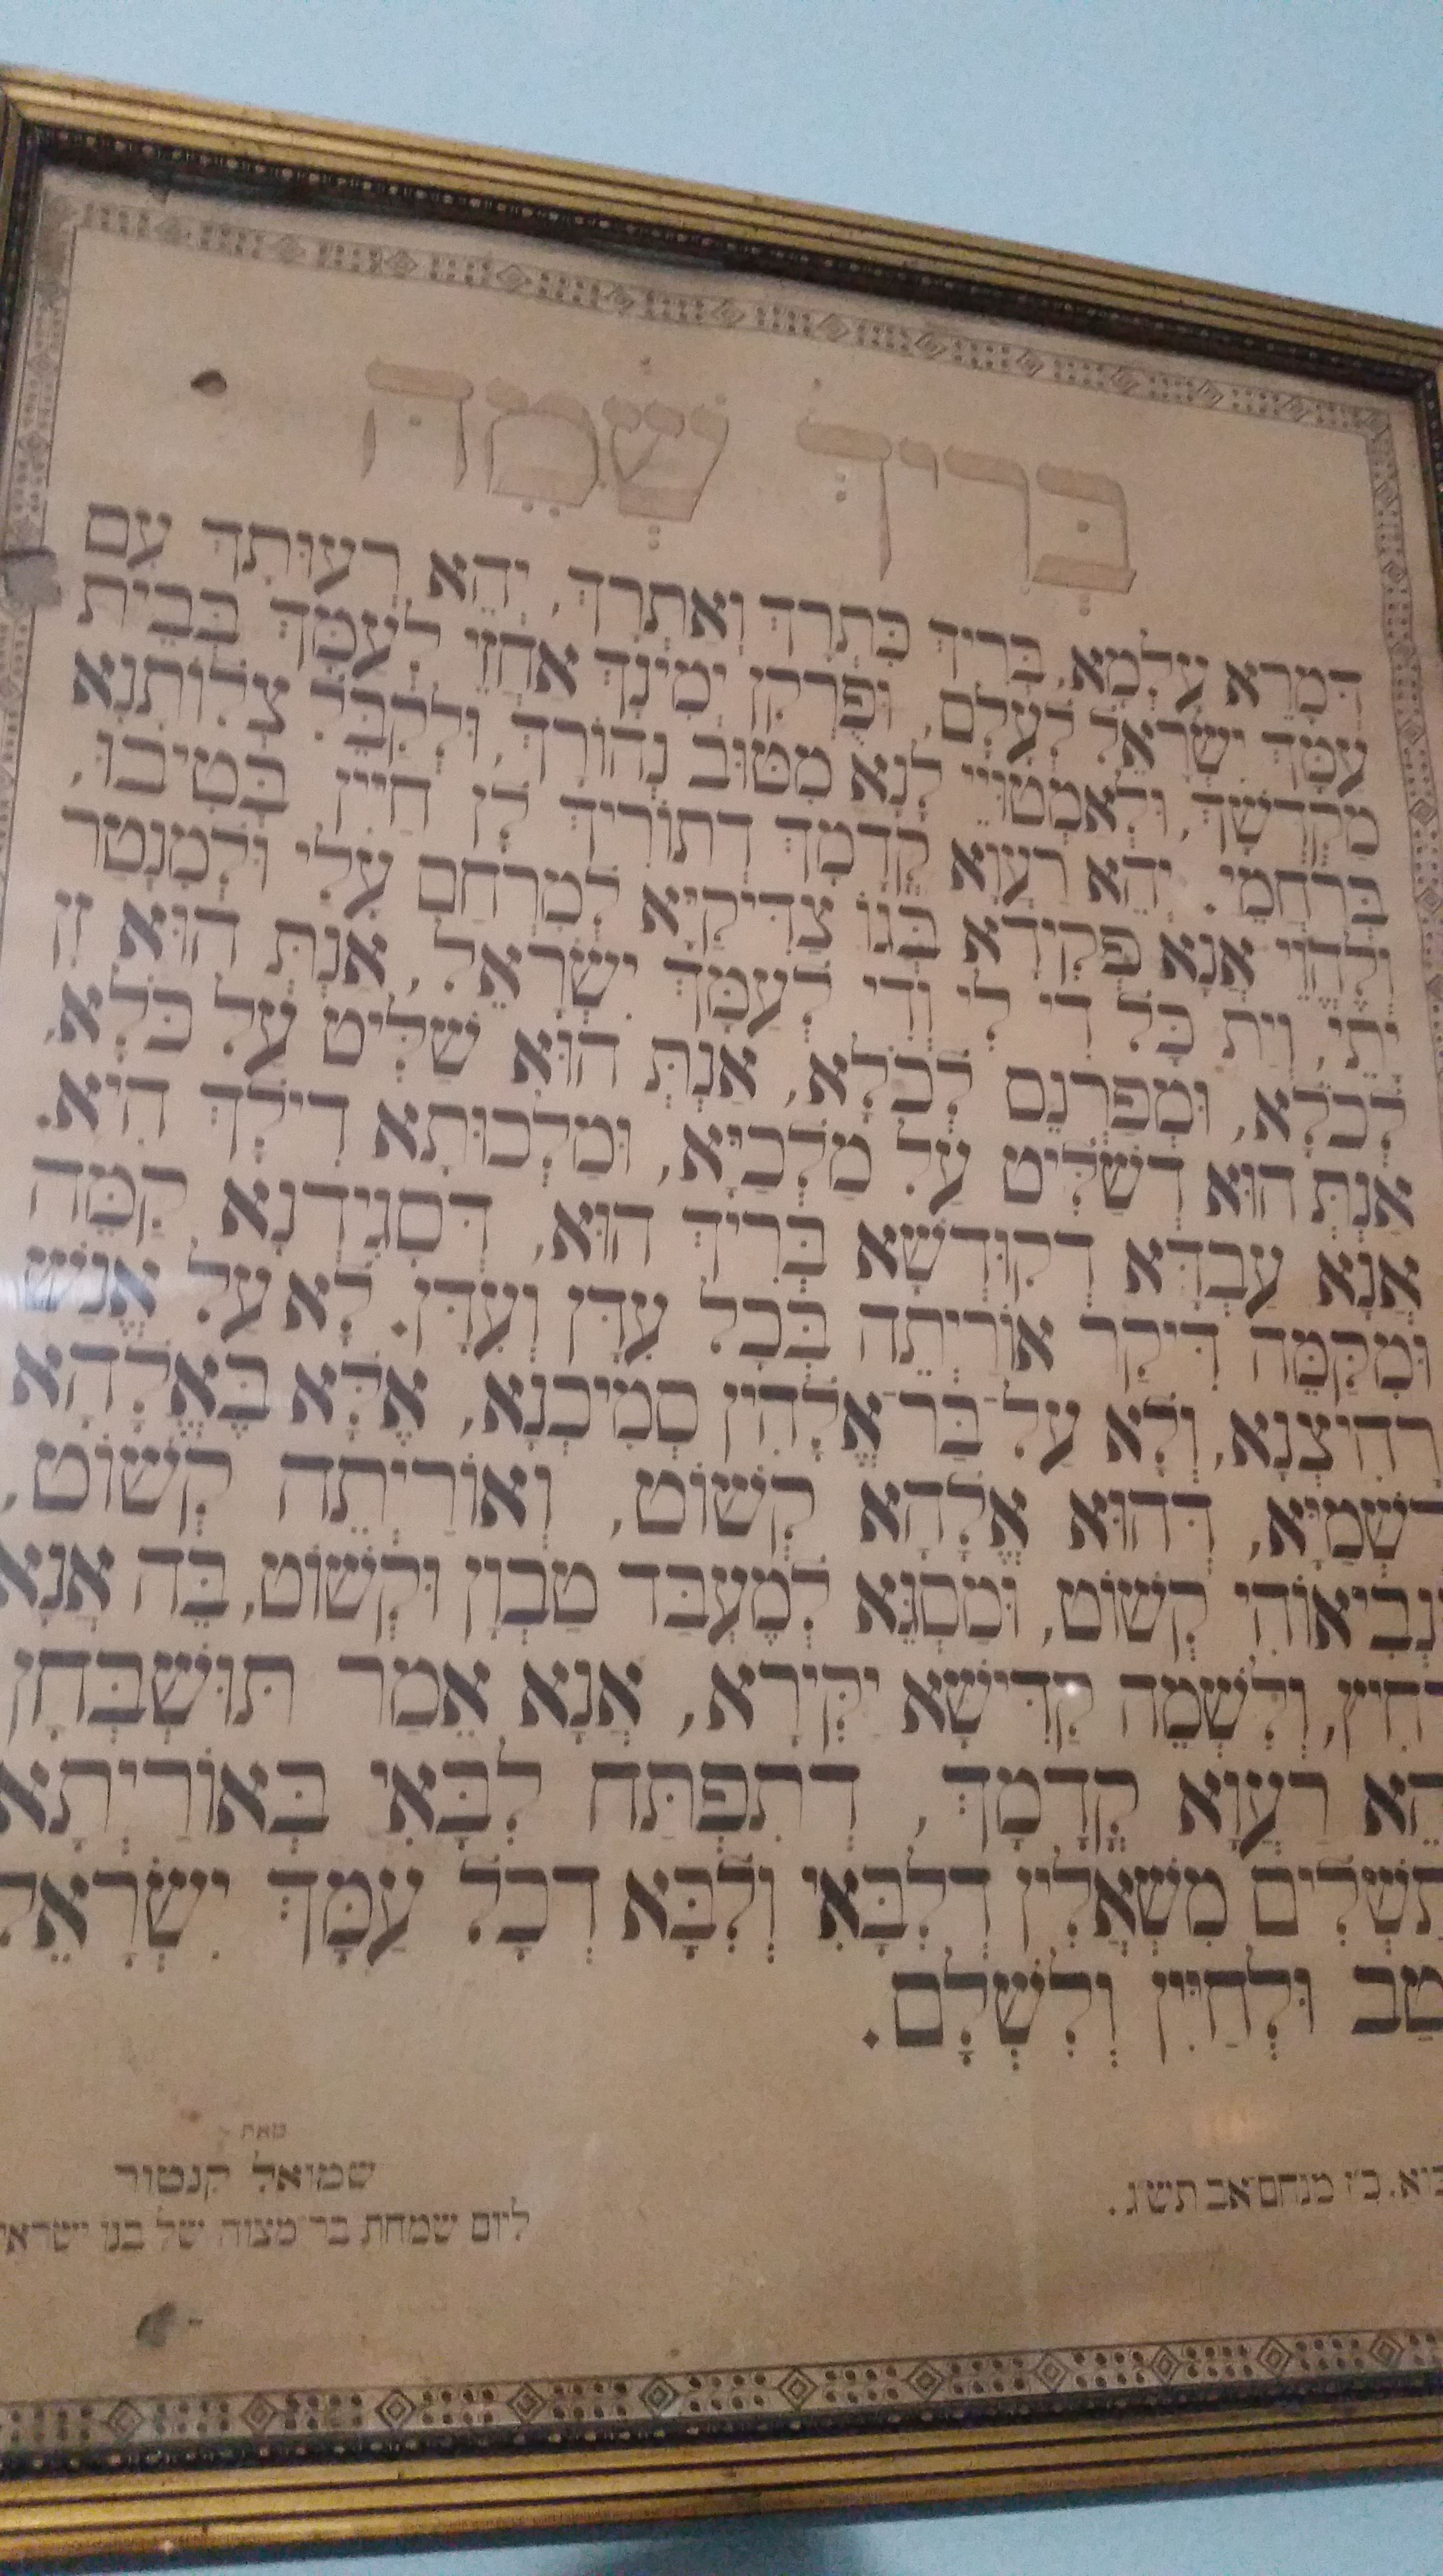 בְּרִיךְ שְׁמֵהּ
דְּמָרֵא עָלְמָא, בְּרִיךְ כִּתְרָךְ וְאַתְרָךְ, יְהֵא רְעוּתָךְ עִם
עַמָּךְ יִשְׂרָאֵל לְעָלַם, וּפֻרְקַן יְמִינָךְ אַחֲזֵי לְעַמָּךְ בְּבֵית
מַקְדְּשָׁךְ, וּלְאַמְטוֹיֵי לָנָא מִטּוּב נְהוֹרָךְ, וּלְקַבֵּל צְלוֹתָנָא
בְּרַחֲמֵי. יְהֵא רַעֲוָא קֳדָמָךְ דְתוֹרִיךְ לָן חַיִּין בְּטִיבוּ,
וְלֶהֱוֵי אֲנָא פְקִידָא בְּגוֹ צַדִּיקַיָּא לְמִרְחַם עָלַי וּלְמִנְטַר
יָתִי, וְיָת כָּל דִּי לִי וְדִי לְעַמָּךְ יִשְׂרָאֵל, אַנְתְּ הוּא זָן
לְכֹלָּא, וּמְפַרְנֵס לְכֹלָּא, אַנְתְּ הוּא שַׁלִּיט עַל כֹּלָּא,
אַנְתְּ הוּא דְשַׁלִּיט עַל מַלְכַיָּא, וּמַלְכוּתָא דִילָךְ הִיא.
אֲנָא עַבְדָּא דְקוּדְשָׁא בְּרִיךְ הוּא, דְּסָגִידְנָא קַמֵּהּ
וּמִקַּמֵּהּ דִּיקַר אוֹרַיְתֵהּ בְּכָל עִדָּן וְעִדָּן. לָא עַל אֱנָשׁ
רָחִיצְנָא, וְלָא עַל־בַּר־אֱלָהִין סְמִיכְנָא, אֶלָּא בֶּאֱלָהָא
דִשְׁמַיָּא, דְּהוּא אֱלָהָא קְשׁוֹט, וְאוֹרַיְתֵהּ קְשׁוֹט,
וּנְבִיאוֹהִי קְשׁוֹט, וּמַסְגֵּא לְמֶעְבַּד טַבְוָן וּקְשׁוֹט, בֵּהּ אֲנָא
רָחִיץ, וְלִשְׁמֵהּ קַדִּישָׁא יַקִּירָא, אֲנָא אֵמַר תּוּשְׁבְּחָן
רַעֲוָא קֳדָמָךְ, דְתִפְתַּח לִבָּאִי בְּאוֹרַיְתָא
מִשְׁאֲלִין דְלִבָּאִי וְלִבָּא דְכָל עַמָּךְ יִשְׂרָאֵל
וּלְחַיִּין וְלִשְׁלָם.
מאת
שמואל קנטור
ליום שמחת בר־מצוה של בנו
מנחם־אב תש״ג.